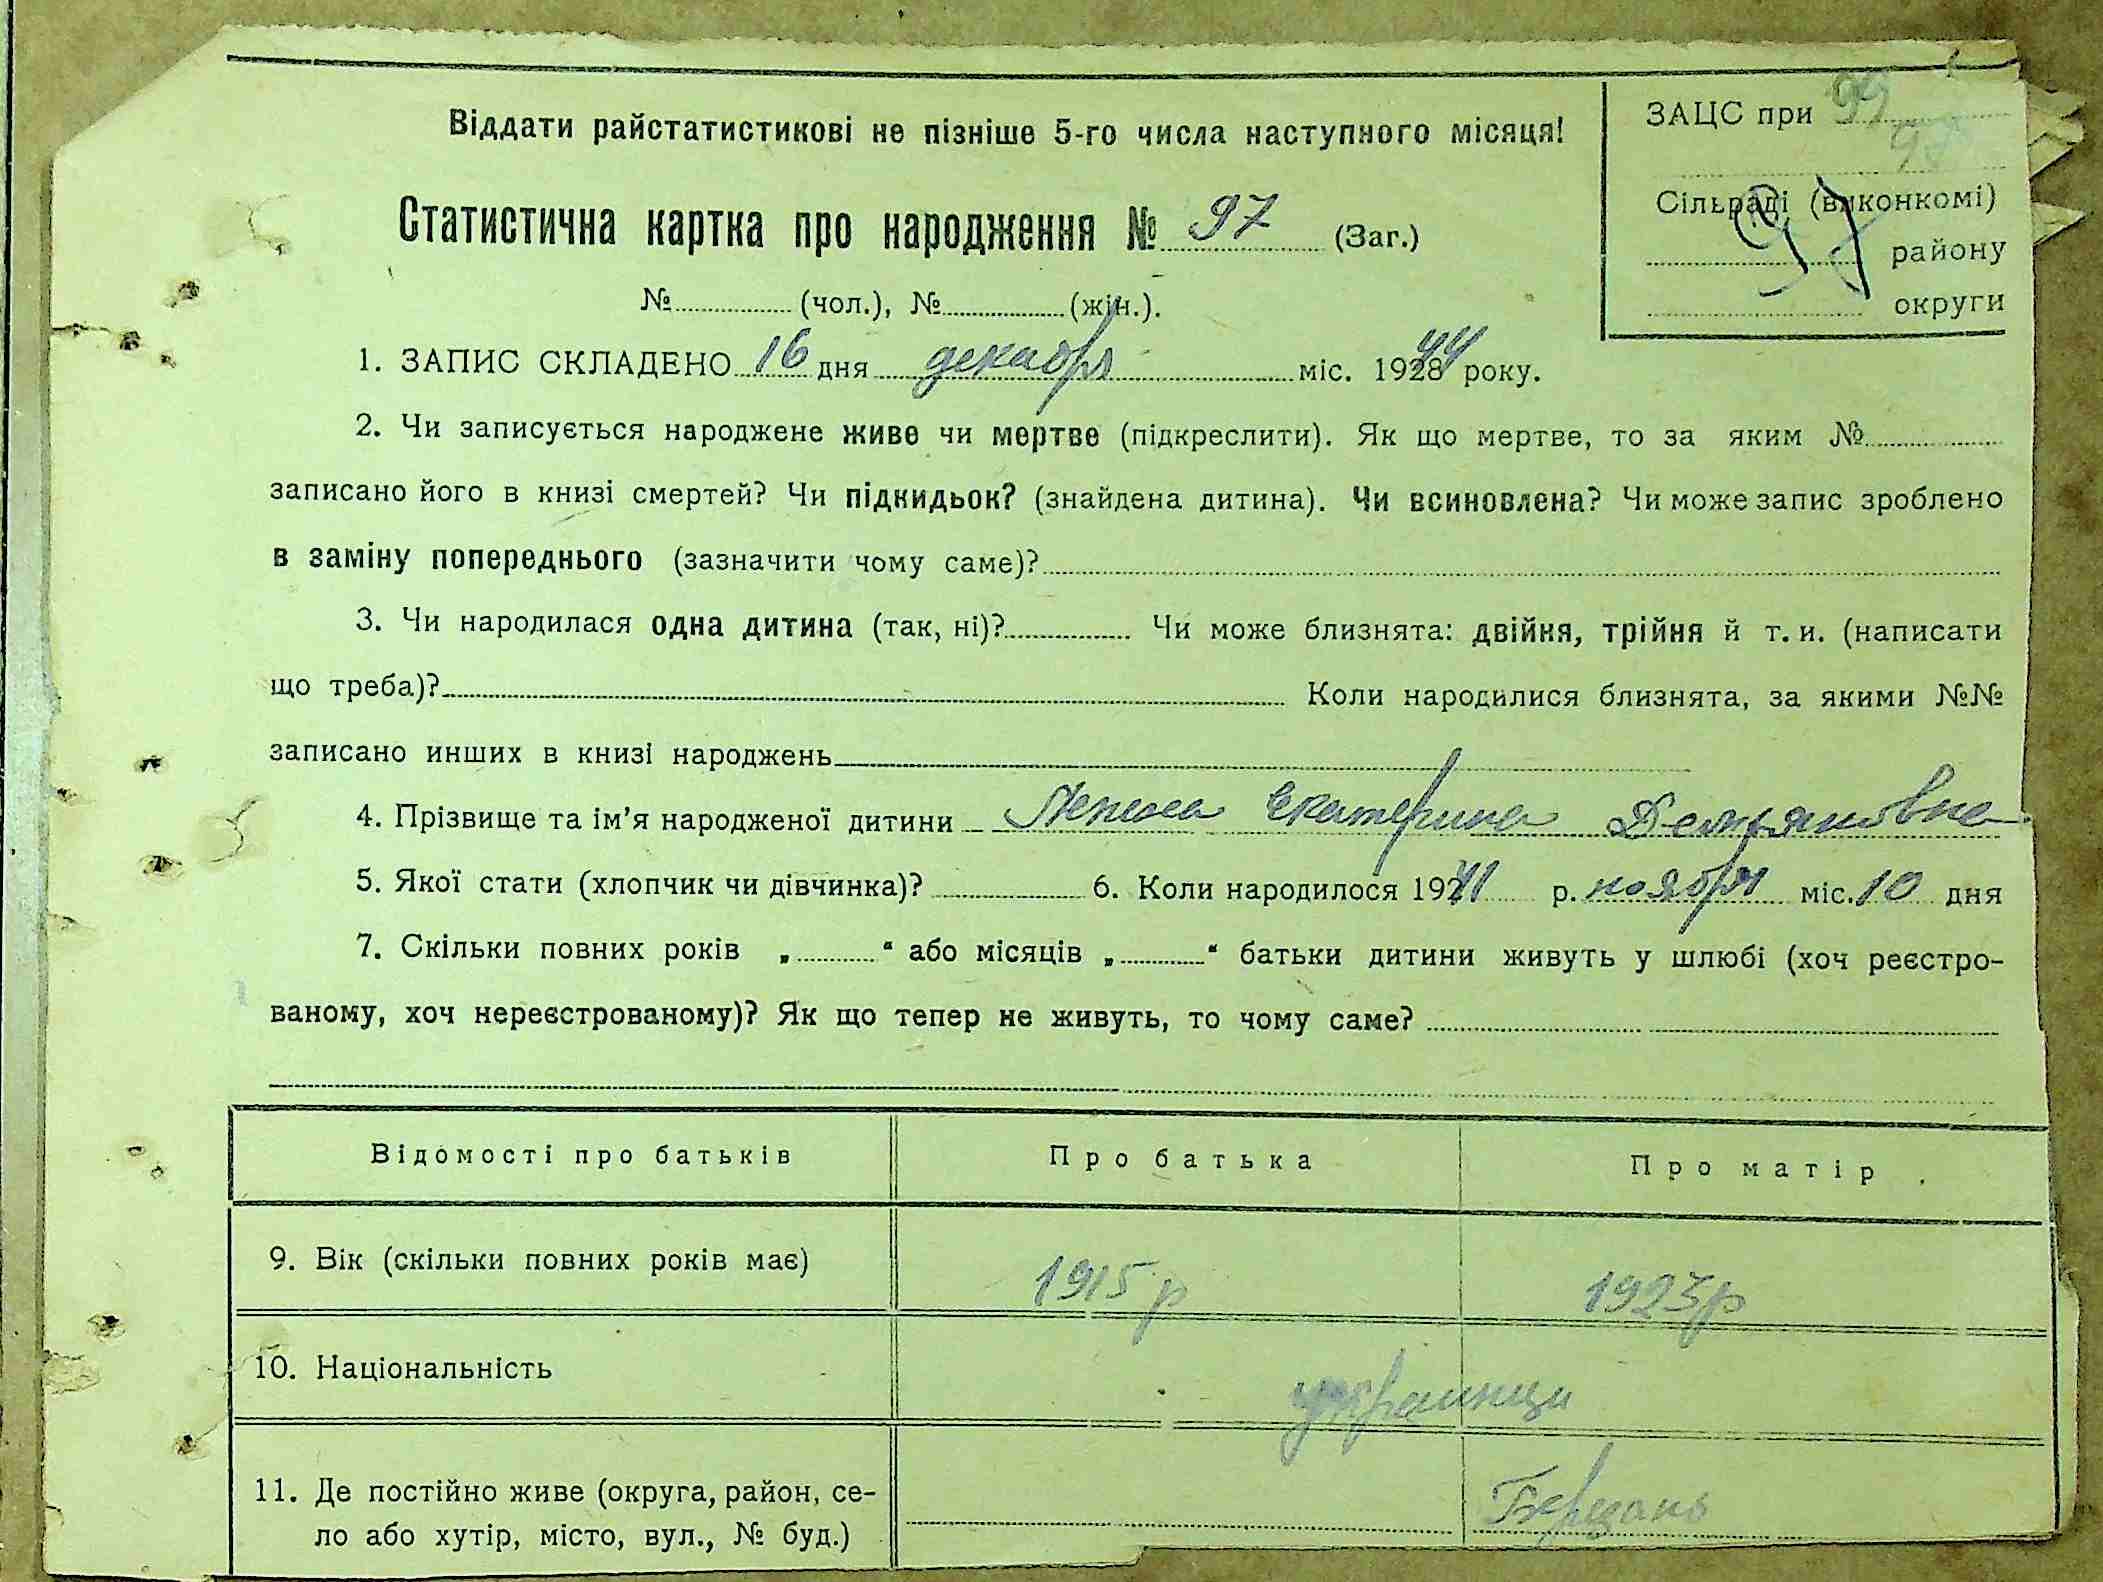 Віддати райстатистикові не пізніше 5-го числа наступного місяця!
ЗАЦС при 99
97
Сільраді (виконкомі)
97
району
округи
Статистична картка про народження № 97 (Заг.)
№ (чол.), № (жін.).
1. ЗАПИС СКЛАДЕНО 16 дня декабря міс. 192844 року.
2. Чи записується народжене живе чи мертве (підкреслити). Як що мертве, то за яким №
записано його в книзі смертей? Чи підкидьок? (знайдена дитина). Чи всиновлена? Чи може запис зроблено
в заміну попереднього (зазначити чому саме)?
3. Чи народилася одна дитина (так, ні)? Чи може близнята: двійня, трійня й т. и. (написати
що треба)? Коли народилися близнята, за якими №№
записано инших в книзі народжень
4. Прізвище та ім’я народженої дитини Екатерина Демьяновна
5. Якої стати (хлопчик чи дівчинка)? 6. Коли народилося 19241 р. ноября міс. 10 дня
7. Скільки повних років „ “ або місяців „ “ батьки дитини живуть у шлюбі (хоч реєстро-
ваному, хоч нереєстрованому)? Як що тепер не живуть, то чому саме?
Відомості про батьків Про батька Про матір
9. Вік (скільки повних років має) 1915 р 1923 р
10. Національність украинци
11. Де постійно живе (округа, район, се-
ло або хутір, місто, вул., № буд.) Березань